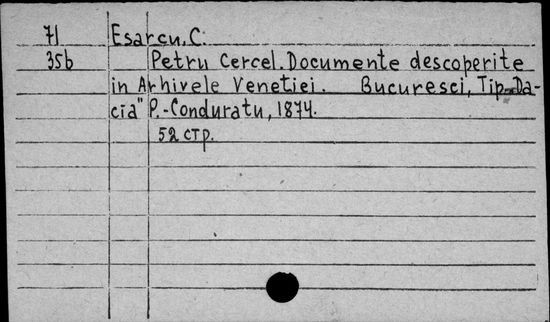 71 Esarcu, C.
35b Petru Cercel. Documente descoperite
in Arhivele Venetiei. Bucuresci, Tip. „Da-
cia" P.-Conduratu, 1874.
52 стр.